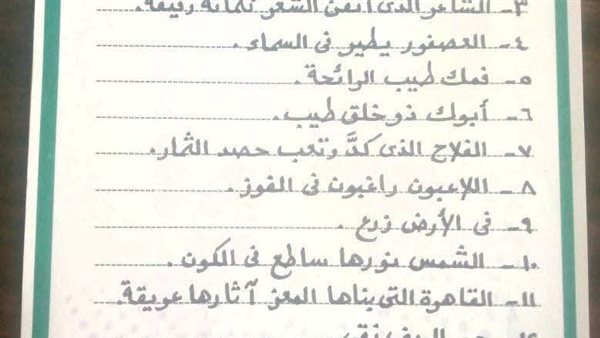 ٣- الشاعر الذى أتقن الشعر كلماته رقيقة.
٤- العصفور يطير فى السماء.
٥- فمك طيب الرائحة.
٦- أبوك ذو خلق طيب.
٧- الفلاح الذى كدَّ وتعب حصد الثمار.
٨- اللاعبون راغبون فى الفوز.
٩- فى الأرض زرع.
١٠- الشمس نورها ساطع فى الكون.
١١- القاهرة التى بناها المعز آثارها عريقة.